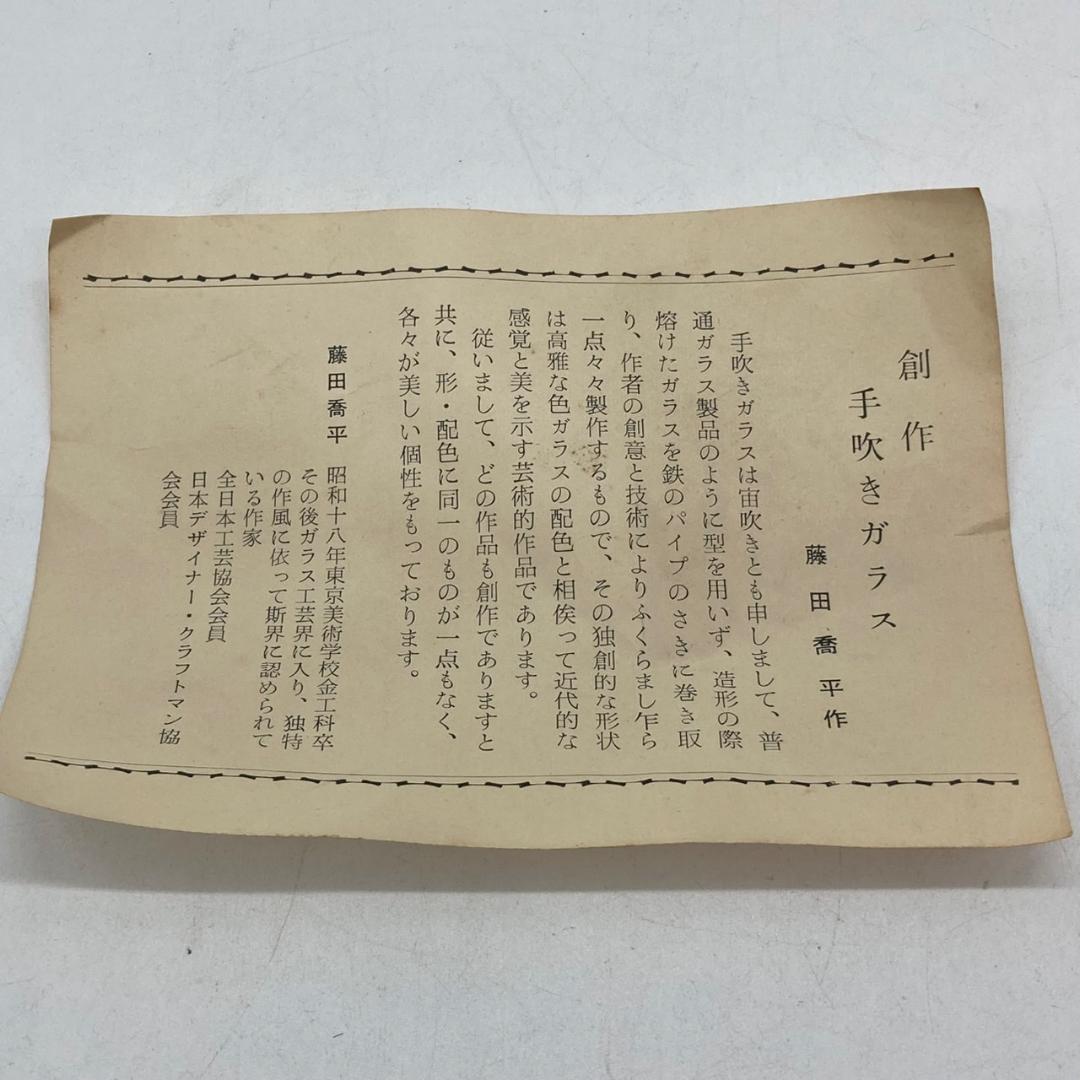 創作
手吹きガラス
藤田喬平作
手吹きガラスは宙吹きとも申しまして、普
通ガラス製品のように型を用いず、造形の際
熔けたガラスを鉄のパイプのさきに巻き取
り、作者の創意と技術によりふくらまし乍ら
一点々々製作するもので、その独創的な形状
は高雅な色ガラスの配色と相俟って近代的な
感覚と美を示す芸術的作品であります。
従いまして、どの作品も創作でありますと
共に、形・配色に同一のものが一点もなく、
各々が美しい個性をもっております。
藤田喬平 昭和十八年東京美術学校金工科卒
その後ガラス工芸界に入り、独特
の作風に依って斯界に認められて
いる作家
全日本工芸協会会員
日本デザイナー・クラフトマン協
会会員